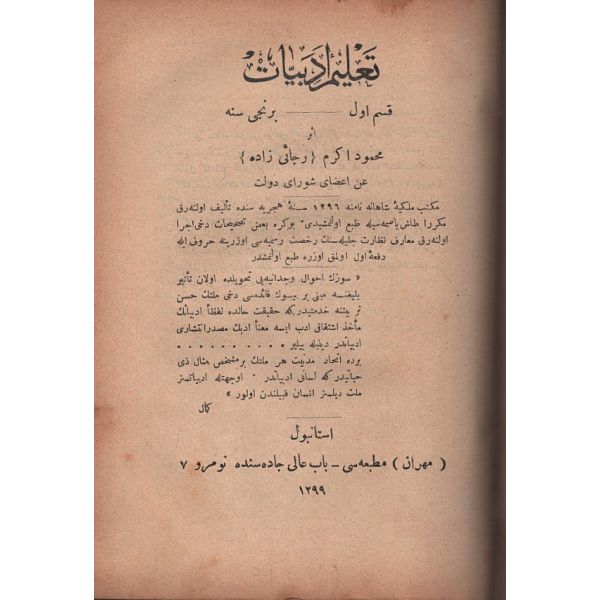 تعليم ادبيات
قسم اول — برنجى سنه
اثر
محمود اكرم { رجائى زاده }
عن اعضاى شوراى دولت
مكتب ملكيهٔ شاهانه نامنه ١٢٩٦ سنهٔ هجريه سنده تأليف اولنه‌رق
مكررا طاش باصمه‌سيله طبع اولنمشيدى. بوكره بعض تصحيحات دخى اجرا
اولنه‌رق معارف نظارت جليله‌سنك رخصت رسميه‌سى اوزرينه حروف ايله
دفعهٔ اول اولمق اوزره طبع اولنمشدر
« سوزك احوال وجدانيه‌يى تحويلده اولان تأثير
بليغنه مبنى بر بيوك فائده‌سى دخى ملتك حسن
تربيتنه خدمتيدركه حقيقت حالده لفظاً ادبياتك
مأخذ اشتقاقى ادب ايسه معناً ادبك مصدر انتشارى
ادبياتدر دينيله بيلير . . . . . . . . .
برده اتحاد مدنيت هر ملتك بر مشخص مثال ذى
حياتيدركه لسانى ادبياتدر . اوجهتله ادبياتسز
ملت ديلسز انسان قبيلندن اولور »
كمال
استانبول
( مهران ) مطبعه‌سى – باب عالى جاده‌سنده نومرو ٧
١٢٩٩